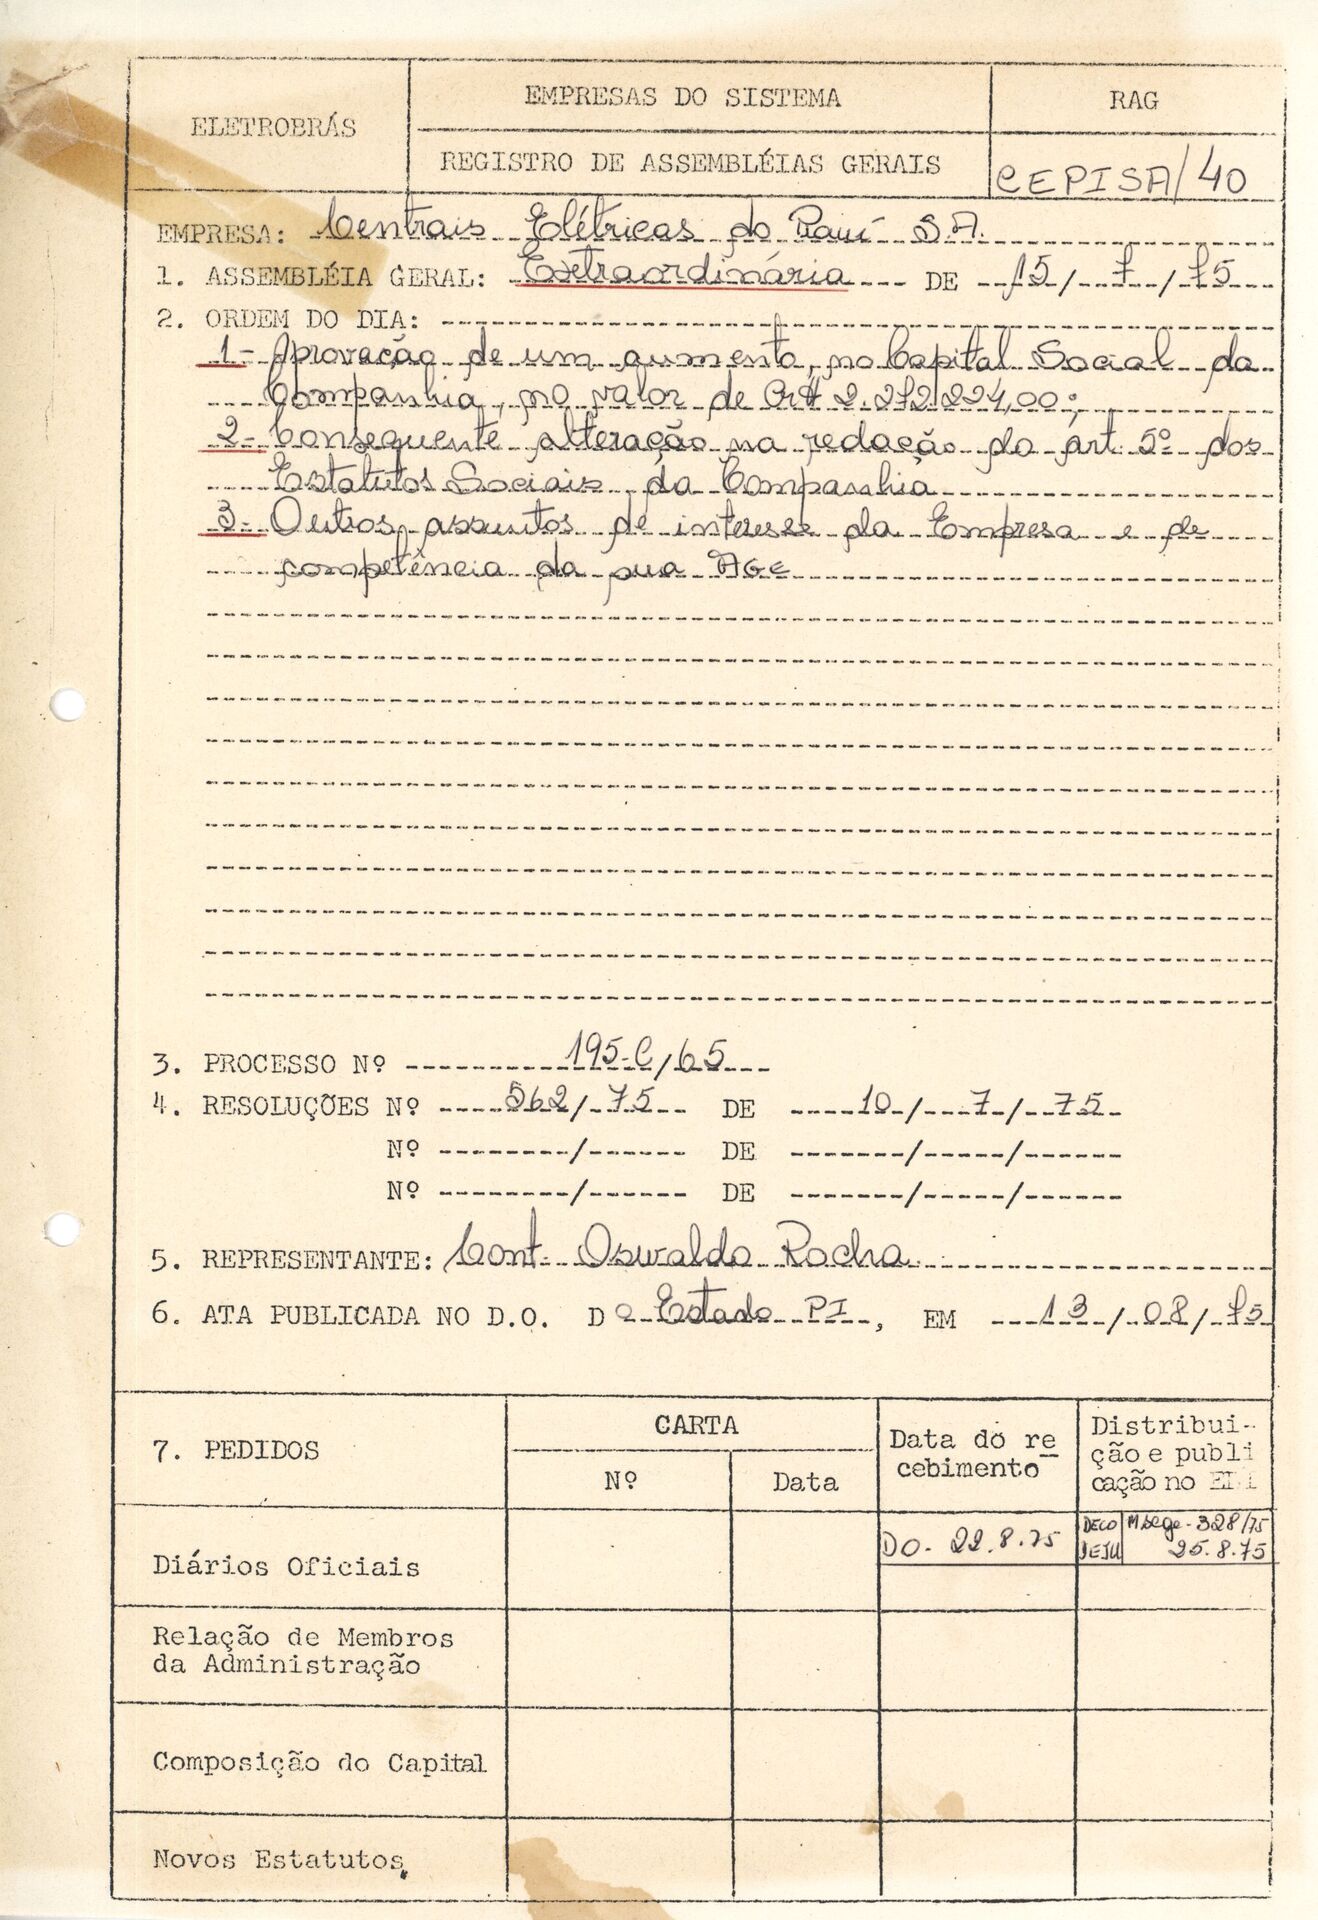 ELETROBRÁS
EMPRESAS DO SISTEMA
REGISTRO DE ASSEMBLÉIAS GERAIS
RAG
CEPISA/40
EMPRESA: Centrais Elétricas do Piauí S.A.
1. ASSEMBLÉIA GERAL: Extraordinária DE 15/7/75
2. ORDEM DO DIA:
1- Aprovação de um aumento, no Capital Social da
Companhia, no valor de Cr$ 2.272.224,00;
2- Consequente alteração na redação do art. 5º dos
Estatutos Sociais da Companhia
3- Outros assuntos de interesse da Empresa e de
competência da sua AGE
3. PROCESSO Nº 195-C/65
4. RESOLUÇÕES Nº 562/75 DE 10/7/75
Nº / DE / /
Nº / DE / /
5. REPRESENTANTE: Cont. Oswaldo Rocha
6. ATA PUBLICADA NO D.O. Do Estado PI, EM 13/08/75
7. PEDIDOS
CARTA
Nº
Data
Data do re
cebimento
Distribui-
ção e publi
cação no
Diários Oficiais
DO. 22.8.75
DECO Msege-328/75
DEJU 25.8.75
Relação de Membros
da Administração
Composição do Capital
Novos Estatutos